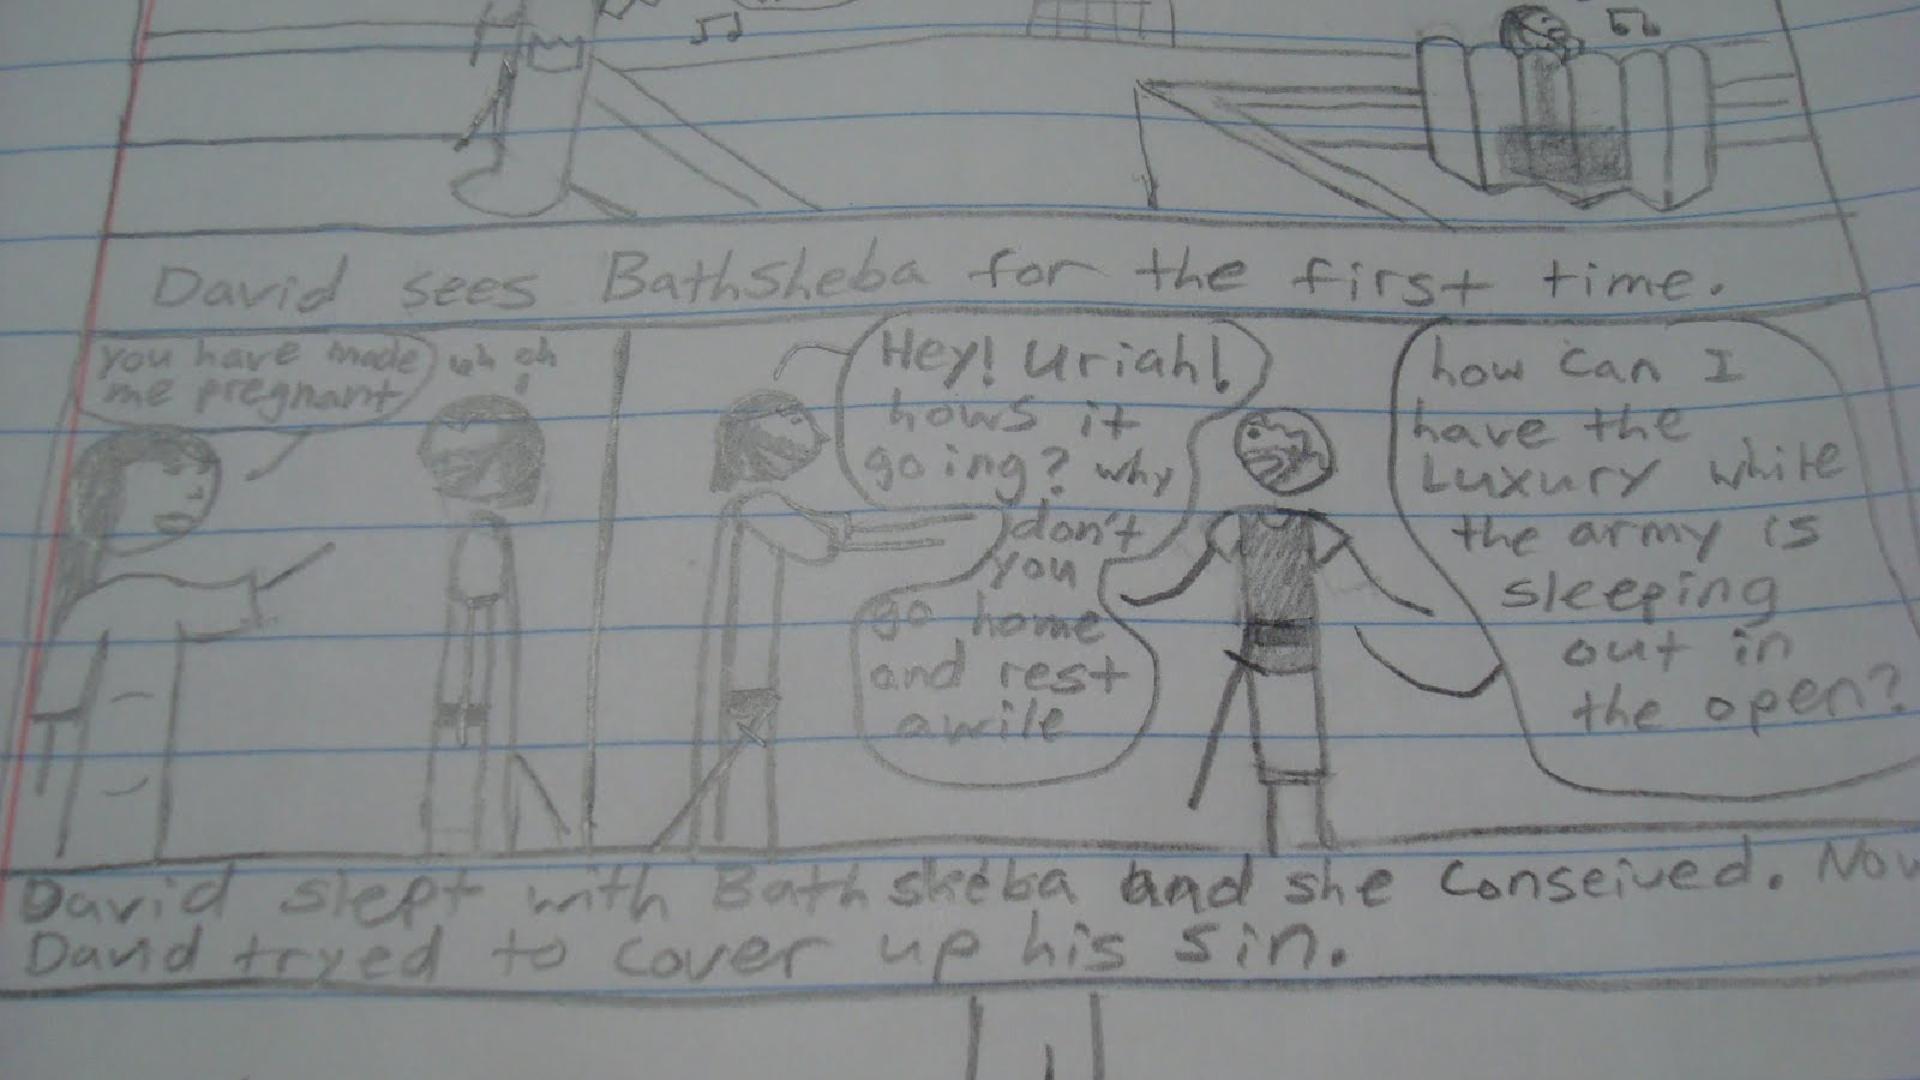 David sees Bathsheba for the first time.
you have made
me pregnant
uh oh
!
Hey! Uriah!
hows it
going? why
don't
you
go home
and rest
awile
how can I
have the
Luxury while
the army is
sleeping
out in
the open?
David slept with Bathsheba and she conseived. Now
David tryed to cover up his sin.